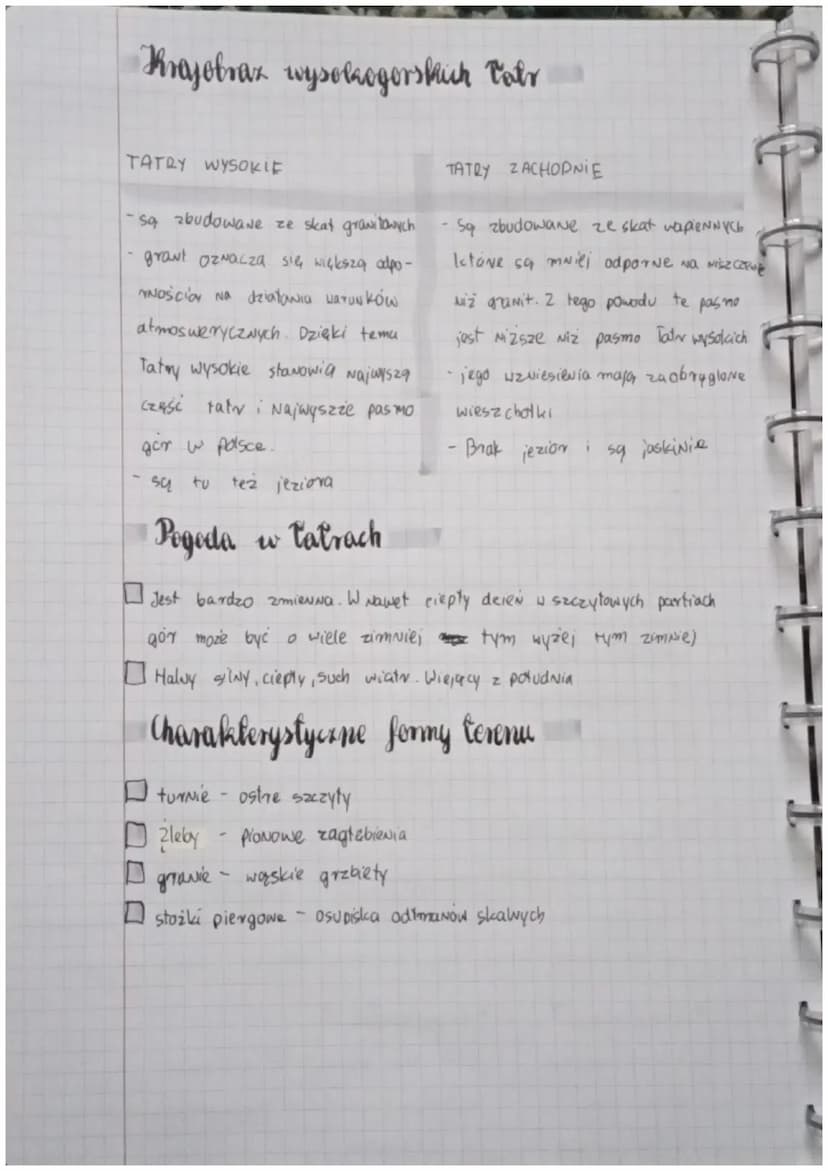 Krajobraz wysokogorskich Tatr
TATRY WYSOKIE
- są zbudowane ze skał granitowych
- grant oznacza się większą odpo-
rnościąr na działania warunków
atmoswerycznych. Dzięki temu
Tatry wysokie stanowią najwyszą
część tatr i najwyszze pasmo
gór w polsce.
- są tu też jeziora
TATRY ZACHODNIE
- są zbudowane ze skał wapiennych
które są mniej odporne na niszczenie
niż granit. Z tego powodu te pasmo
jest niższe niż pasmo Tatr wysokich
- jego wzniesienia mają zaobrąglone
wieszchołki
- Brak jezior i są jaskinie
Pogoda w Tatrach
Jest bardzo zmienna. W nawet ciepły dzień w szczytowych partiach
gór może być o wiele zimniej tym wyżej tym zimniej
Halny silny, ciepły, such wiatr. Wiejący z południa
Charakterystyczne formy terenu
turnie - ostre szczyty
żleby - pionowe zagłębienia
granie - wąskie grzbiety
stożki piergowe - osupiska odłmanów skalnych